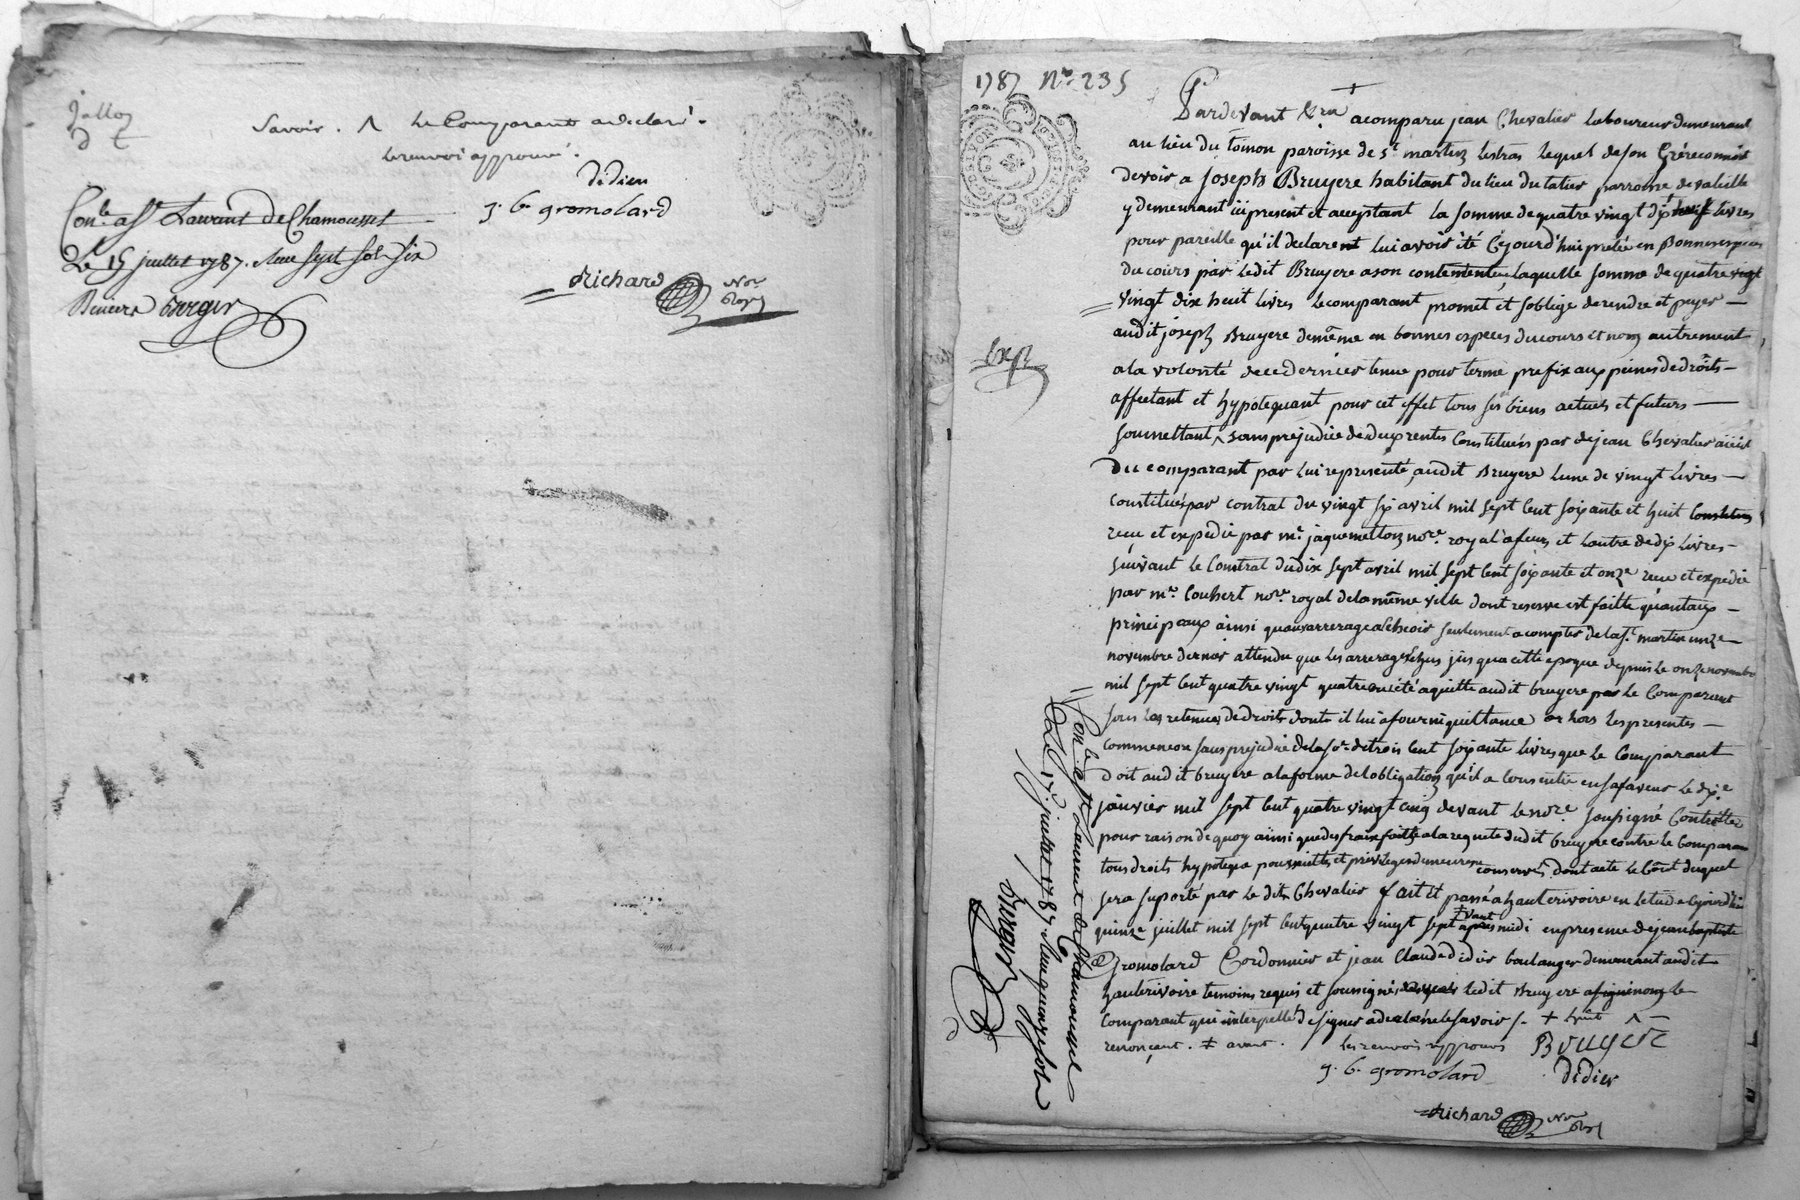 Savoir. Λ Le Comparant a declaré.
le renvoi approuvé.
didier
J. B. gromolard
Con.lé a St Laurent de Chamousset
Le 15 juillet 1787. Recu sept sols six
Deniers Berger
Richard No.re Royl
1787 No. 235
Pardevant & ca + a comparu jean Chevalier laboureur demeurant
au lieu du Tomon paroisse de St martin Lestras lequel de son Gré reconnoit
devoir a Joseph Bruyere habitant du lieu du tatier parroisse de valeille
y demeurant ici present et acceptant la somme de quatre vingt dix livres
pour pareille qu'il declarent lui avoir été Cejourd'hui pretée en Bonnes especes
du cours par ledit Bruyere a son contentement laquelle somme de quatre vingt
vingt dix huit livres le comparant promet et s'oblige de rendre et payer
audit joseph Bruyere de même en bonnes especes du cours et non autrement
a la volonté de ce dernier tenue pour terme prefix aux peines de droits
affectant et hypotequant pour cet effet tous ses biens actuels et futurs
soumettant Λ sans prejudice de deux rentes Constituées par jean Chevalier
Du comparant par lui representé, audit Bruyere lune de vingt livres
constituée par contrat du vingt six avril mil sept cent soixante et huit
recu et expedié par me. jaquemetton nore. royal a feurs et lautre de dix livres
suivant le Contrat du dix sept avril mil sept cent soixante et onze recu et expedié
par me. Coubert nore. royal de la même ville dont reserve est faitte quant aux
principeaux ainsi quaux arrerages a Echeoir seulement a compter de la St martin onze
novembre dernier attendu que les arrerages Echus jusqua cette epoque depuis le onze novembre
mil sept cent quatre vingt quatre ont été aquitté audit bruyere par le Comparant
sous les retenues de droits dont il lui a fourni quittance or hors les presentes
comme encore sans prejudice de la se. de trois cent soixante livres que le Comparant
doit audit bruyere a la forme de lobligation qu'il a consentie en sa faveur le dix
janvier mil sept cent quatre vingt cinq devant le nore. soussigné Contrôllée
pour raison de quoy ainsi que des frais faitts a la requete dudit bruyere contre le Comparant
tous droits hypoteque poursuitte et privileges demeurent conservés, dont acte le Coût duquel
sera suporté par le dit Chevalier fait et passé a hauterivoire en letude cejourd'hui
quinze juillet mil sept cent quatre vingt sept ‡ vant apres midi en presence de jean baptiste
Gromolard Cordonnier et jean Claude didier boulanger demeurant audit
hauterivoire temoins requis et soussignés ledit Bruyere a signé non le
comparant qui interpellé de signer a declaré ne le savoir /. + huit Λ
renonçant. ‡ avant. les renvois approuvés Bruyere
J. B. gromolard didier
Richard No.re Royl
Exp.
Con.lé a St Laurent de Chamousset
Le 15 juillet 1787. Recu quinze sols
Berger